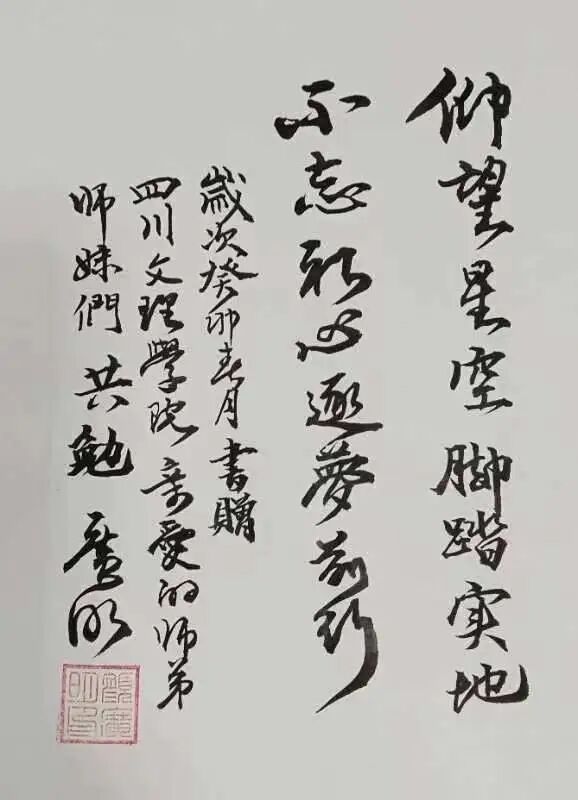 仰望星空脚踏实地
不忘初心逐夢前行
歲次癸卯春月書贈
四川文理學院亲愛的师弟
师妹們共勉 廣明